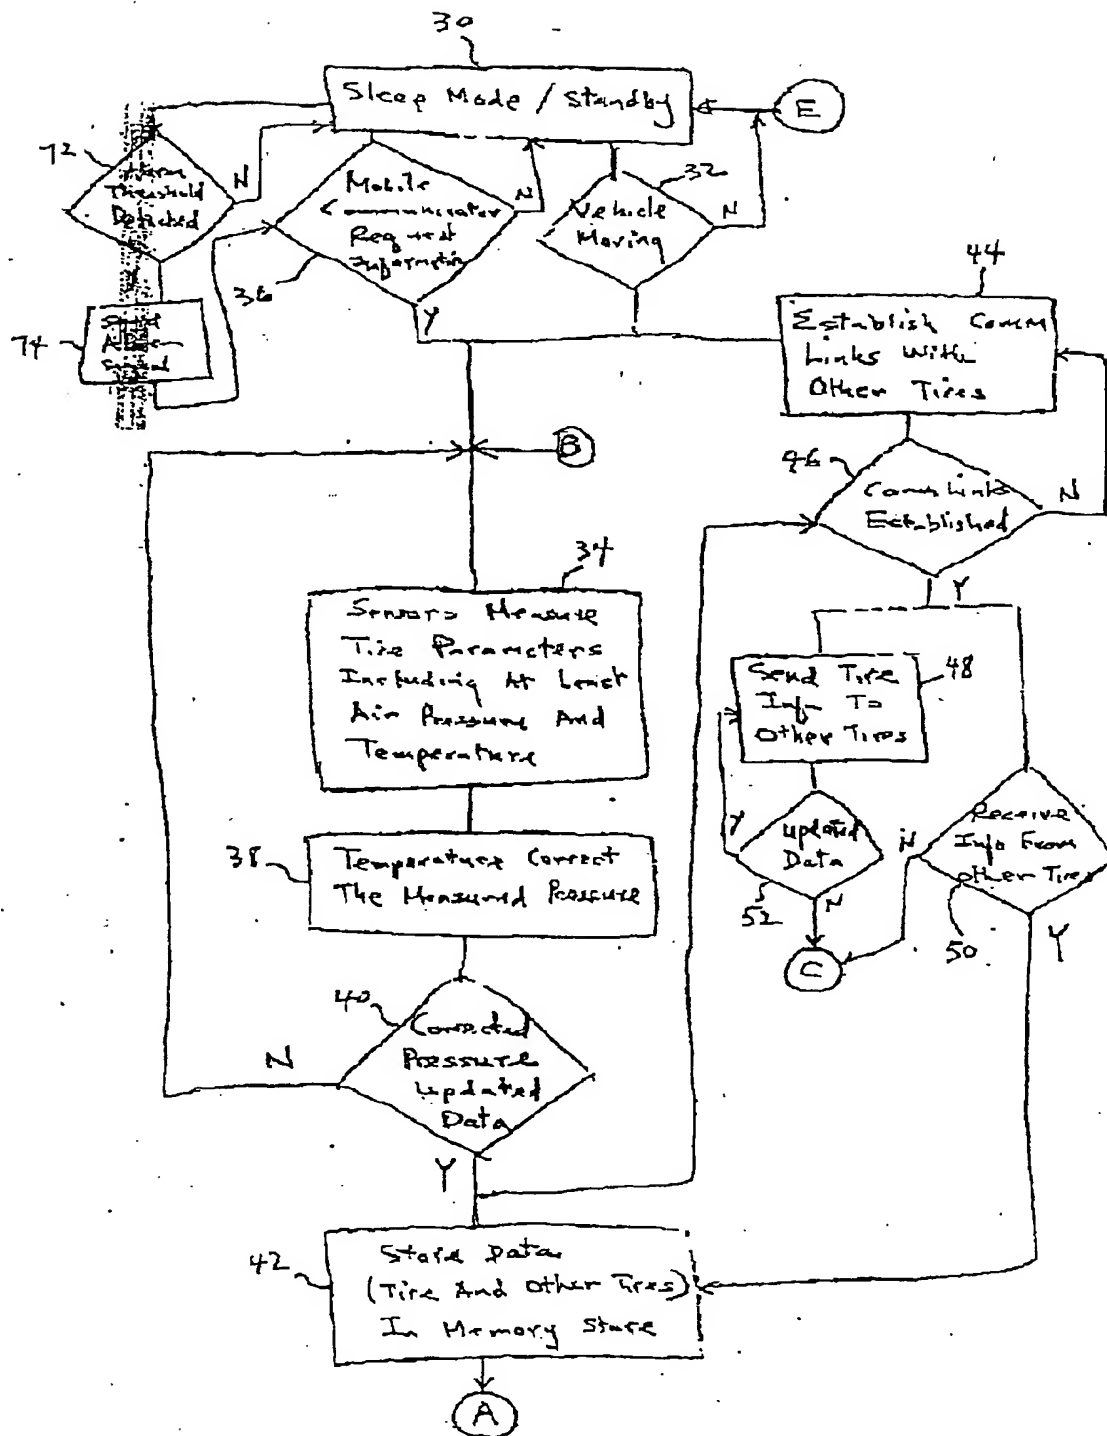 30
Sleep Mode / Standby
E
72
Alarm
Threshold
Detected
N
Mobile
Communicator
Request
Information
N
36
Y
32
Vehicle
Moving
N
44
Establish Comm
Links With
Other Tires
74
Send
Alarm
Signal
B
46
Comm Links
Established
N
Y
34
Sensors Measure
Tire Parameters
Including At Least
Air Pressure And
Temperature
48
Send Tire
Info To
Other Tires
Y
Updated
Data
52
N
N
Receive
Info From
Other Tires
50
Y
C
38
Temperature Correct
The Measured Pressure
40
Corrected
Pressure
Updated
Data
N
Y
42
Store Data
(Tire And Other Tires)
In Memory Store
A